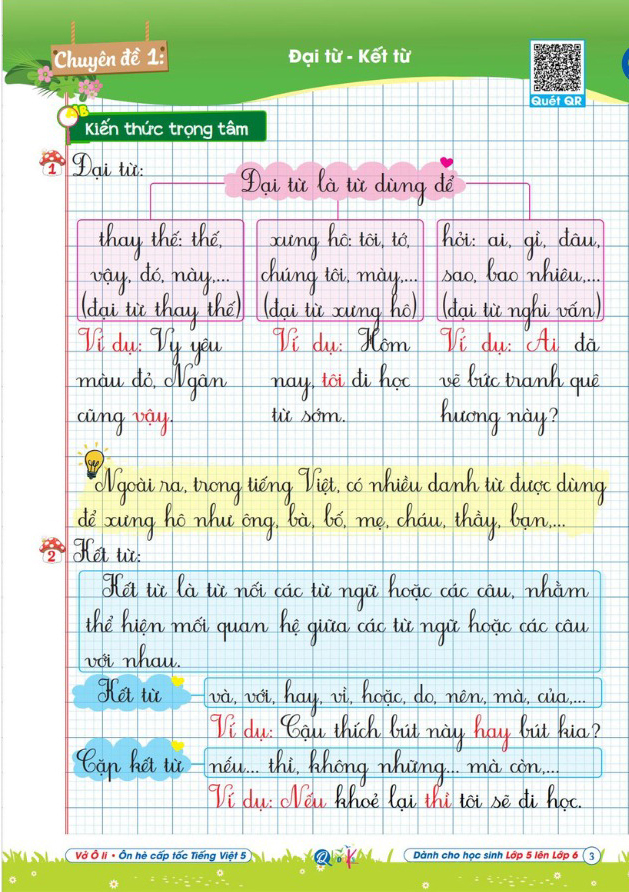 Chuyên đề 1:
Đại từ - Kết từ
Quét QR
Kiến thức trọng tâm
1
Đại từ:
Đại từ là từ dùng để
thay thế: thế,
vậy, đó, này,...
(đại từ thay thế)
Ví dụ: Vy yêu
màu đỏ, Ngân
cũng vậy.
xưng hô: tôi, tớ,
chúng tôi, mày,...
(đại từ xưng hô)
Ví dụ: Hôm
nay, tôi đi học
từ sớm.
hỏi: ai, gì, đâu,
sao, bao nhiêu,...
(đại từ nghi vấn)
Ví dụ: Ai đã
vẽ bức tranh quê
hương này?
Ngoài ra, trong tiếng Việt, có nhiều danh từ được dùng
để xưng hô như ông, bà, bố, mẹ, cháu, thầy, bạn,...
2
Kết từ:
Kết từ là từ nối các từ ngữ hoặc các câu, nhằm
thể hiện mối quan hệ giữa các từ ngữ hoặc các câu
với nhau.
Kết từ
và, với, hay, vì, hoặc, do, nên, mà, của,...
Ví dụ: Cậu thích bút này hay bút kia?
Cặp kết từ
nếu... thì, không những... mà còn,...
Ví dụ: Nếu khoẻ lại thì tôi sẽ đi học.
Vở Ô li • Ôn hè cấp tốc Tiếng Việt 5
Dành cho học sinh Lớp 5 lên Lớp 6
3